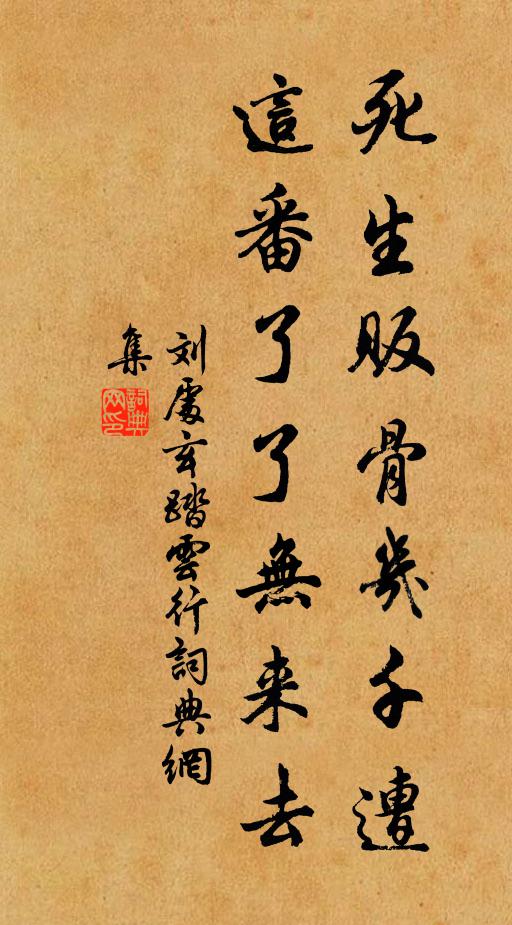 死生販骨幾千遭
這番了了無来去
刘處玄踏雲行詞典網
集
詞典
网印